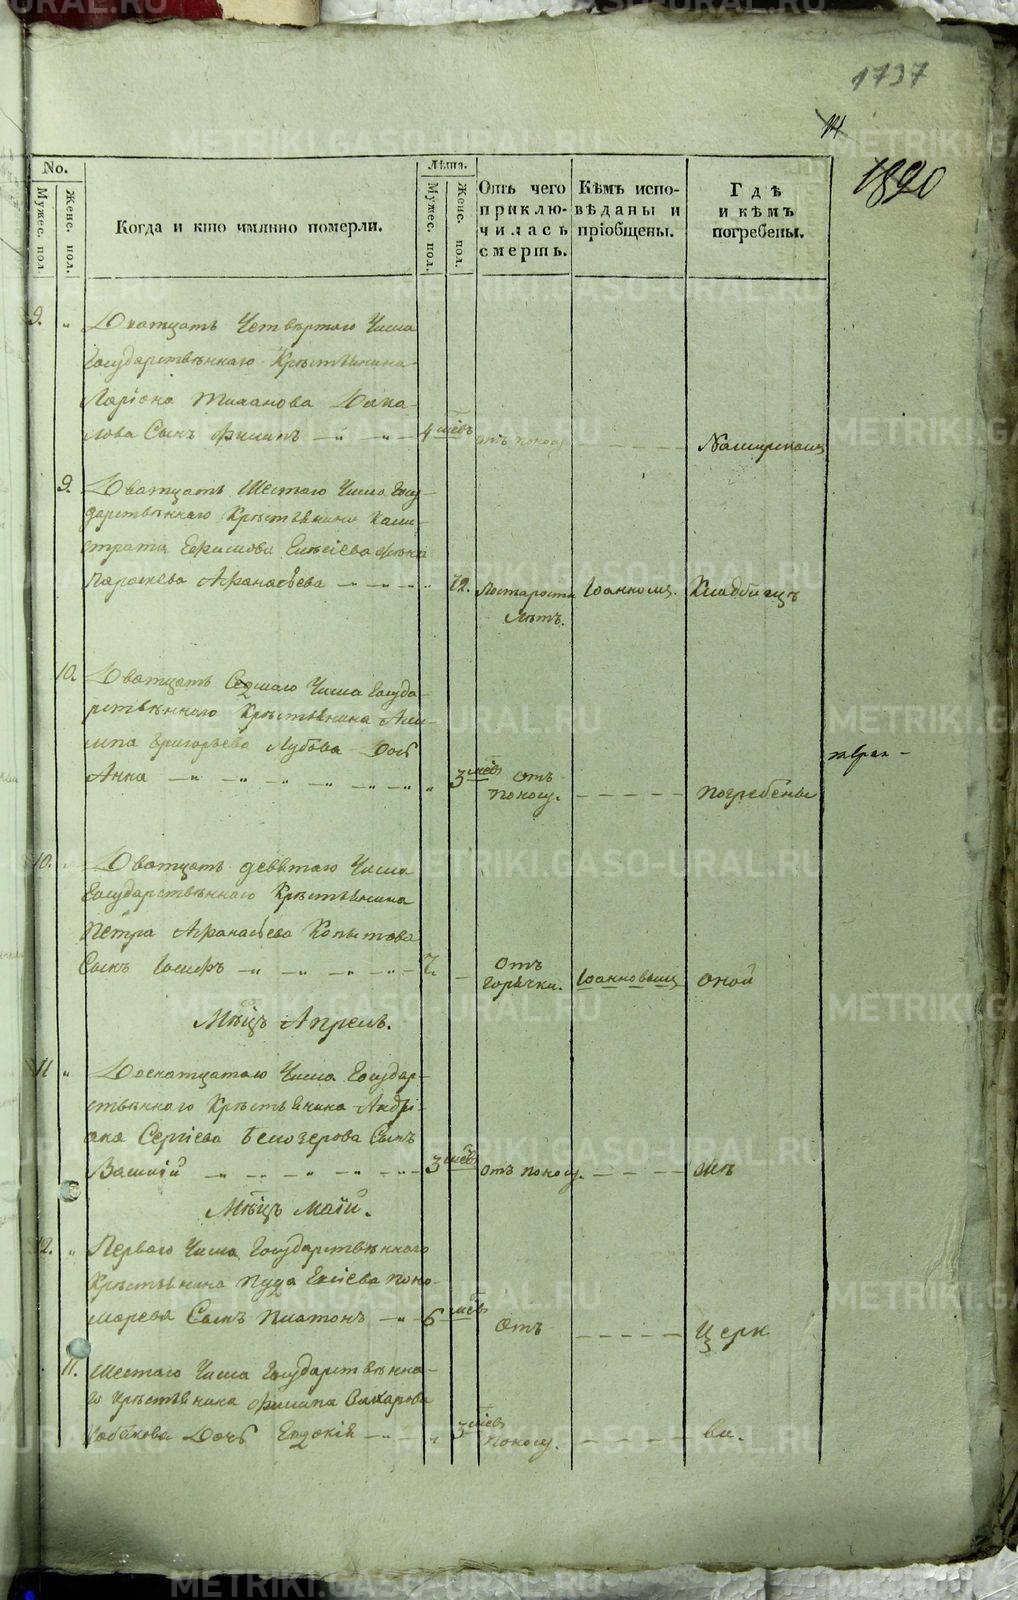 1737
1820
No.
Мужес. пол.
Женс. пол.
Когда и кто имянно померли.
Лѣта.
Мужес. пол.
Женс. пол.
Отъ чего приклю-
чилась
смерть.
Кѣмъ испо-
вѣданы и
пріобщены.
Гдѣ
и кѣмъ
погребены.
9. Дватцать Четвѣртаго Числа
Государствѣннаго Крѣстьянина
Ларіона
лова Сынъ Филипъ 4 мѣсъ отъ поносу
9. Дватцать Шестаго Числа Госу-
дарствѣннаго Крѣстьянина Кали-
страта Ефимова Елисіева жена
Параскева Афанасьева 72. Постарости Іоанномъ. Кладбищѣ
лѣтъ.
10. Дватцать Седмаго Числа Госуда-
рствѣннаго Крѣстьянина
Григорьева Дочь
Анна 3 мѣсъ отъ поносу. погребены
10. Дватцать девятаго Числа
Государствѣннаго Крѣстьянина
Петра Афанасьева Копытова
Сынъ Іосифъ 7. отъ горячки. Іоанновымъ оной
Мѣсцъ Апрель.
11 Двенатцатаго Числа Государ-
ствѣннаго Крѣстьянина Андрі-
ана Сергіева Белозерова Сынъ
Василій 3 мѣсъ отъ поносу. же
Мѣсцъ Маій.
12. Перваго Числа Государствѣннаго
Крѣстьянина Пуда Елісіева Поно-
марева Сынъ Платонъ 6 мѣсъ отъ Церк
11. Шестаго Числа Государствѣнна-
го Крѣстьянина Филипа Захарова
Дочь Евдокія 3 мѣсъ поносу. ви.
METRIKI.GASO-URAL.RU